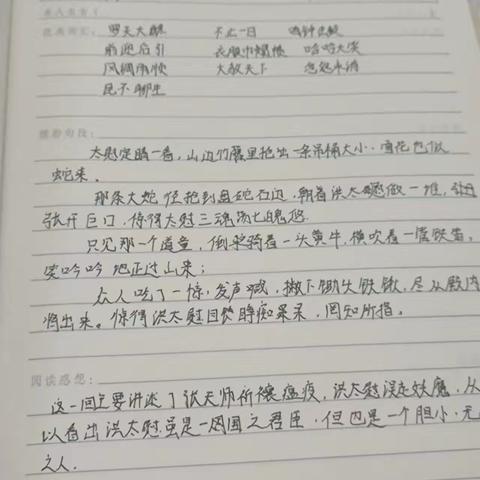 罗天大醮 不止一日 鸣钟击鼓
前迎后引 衣服巾帽 哈哈大笑
风调雨顺 大赦天下 忽忽
民不聊生
精彩句段：
太尉定睛一看，山边竹藤里抢出一条吊桶大小、雪花也似
蛇来。
那条大蛇径抢到盘蛇石边，朝着洪太尉做一堆，
张开巨口，惊得太尉三魂荡七魄悠
只见那一个道童，倒骑着一头黄牛，横吹着一管铁笛，
笑吟吟地正过山来；
众人吃了一惊，发声喊，撇下锄头铁锹，尽从殿内
将出来。惊得洪太尉目瞪痴呆，罔知所措。
阅读感想：
这一回主要讲述了张天师祈禳瘟疫，洪太尉误走妖魔，从
以看出洪太尉虽是一国之君臣，但也是一个胆小、无
之人。